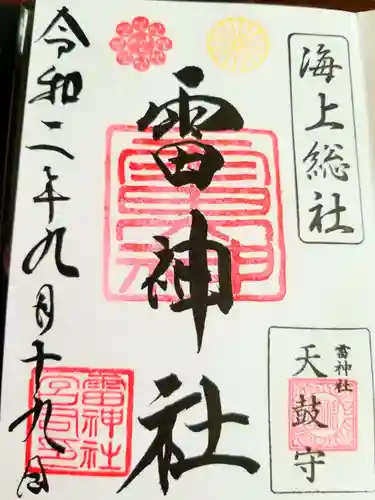 海上総社
雷神社
天鼓守
雷神社
令和二年九月十九日
雷神社